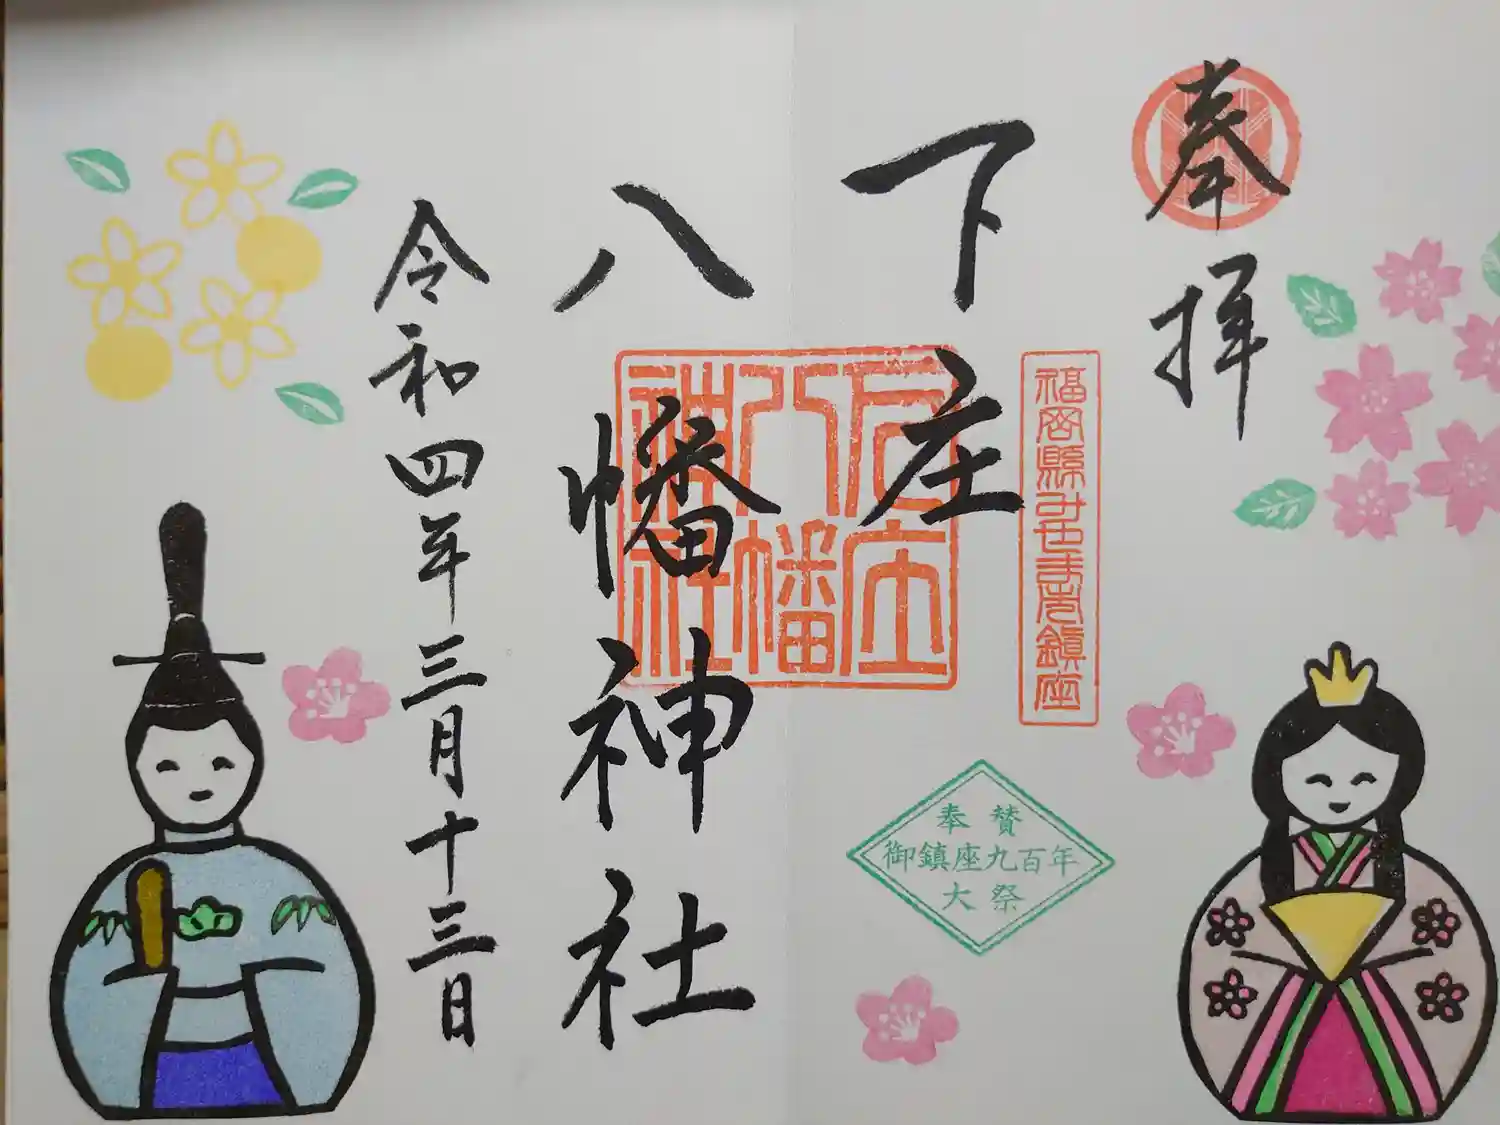 奉拝
福岡縣みやま市鎮座
下庄
八幡神社
下庄八幡神社
奉賛
御鎮座九百年
大祭
令和四年三月十三日